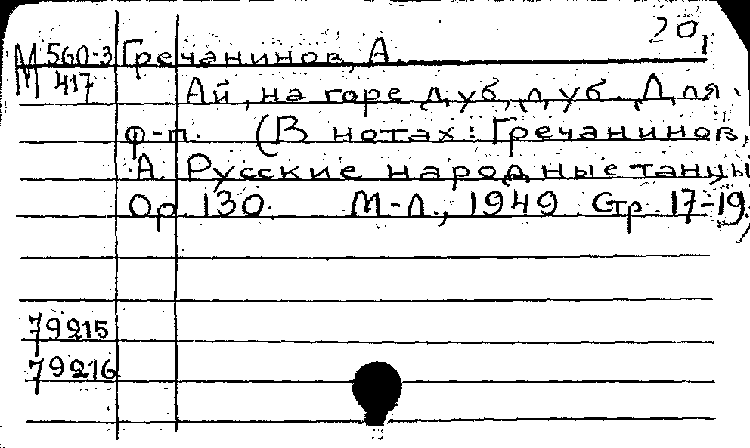 20,
М 560-3 Гречанинов, А.
М 417 Ай, на горе дуб, дуб. Для
ф-п. (В нотах: Гречанинов,
А. Русские народные танцы
Op. 130. М-Л., 1949 Стр. 17-19)
79215
79216